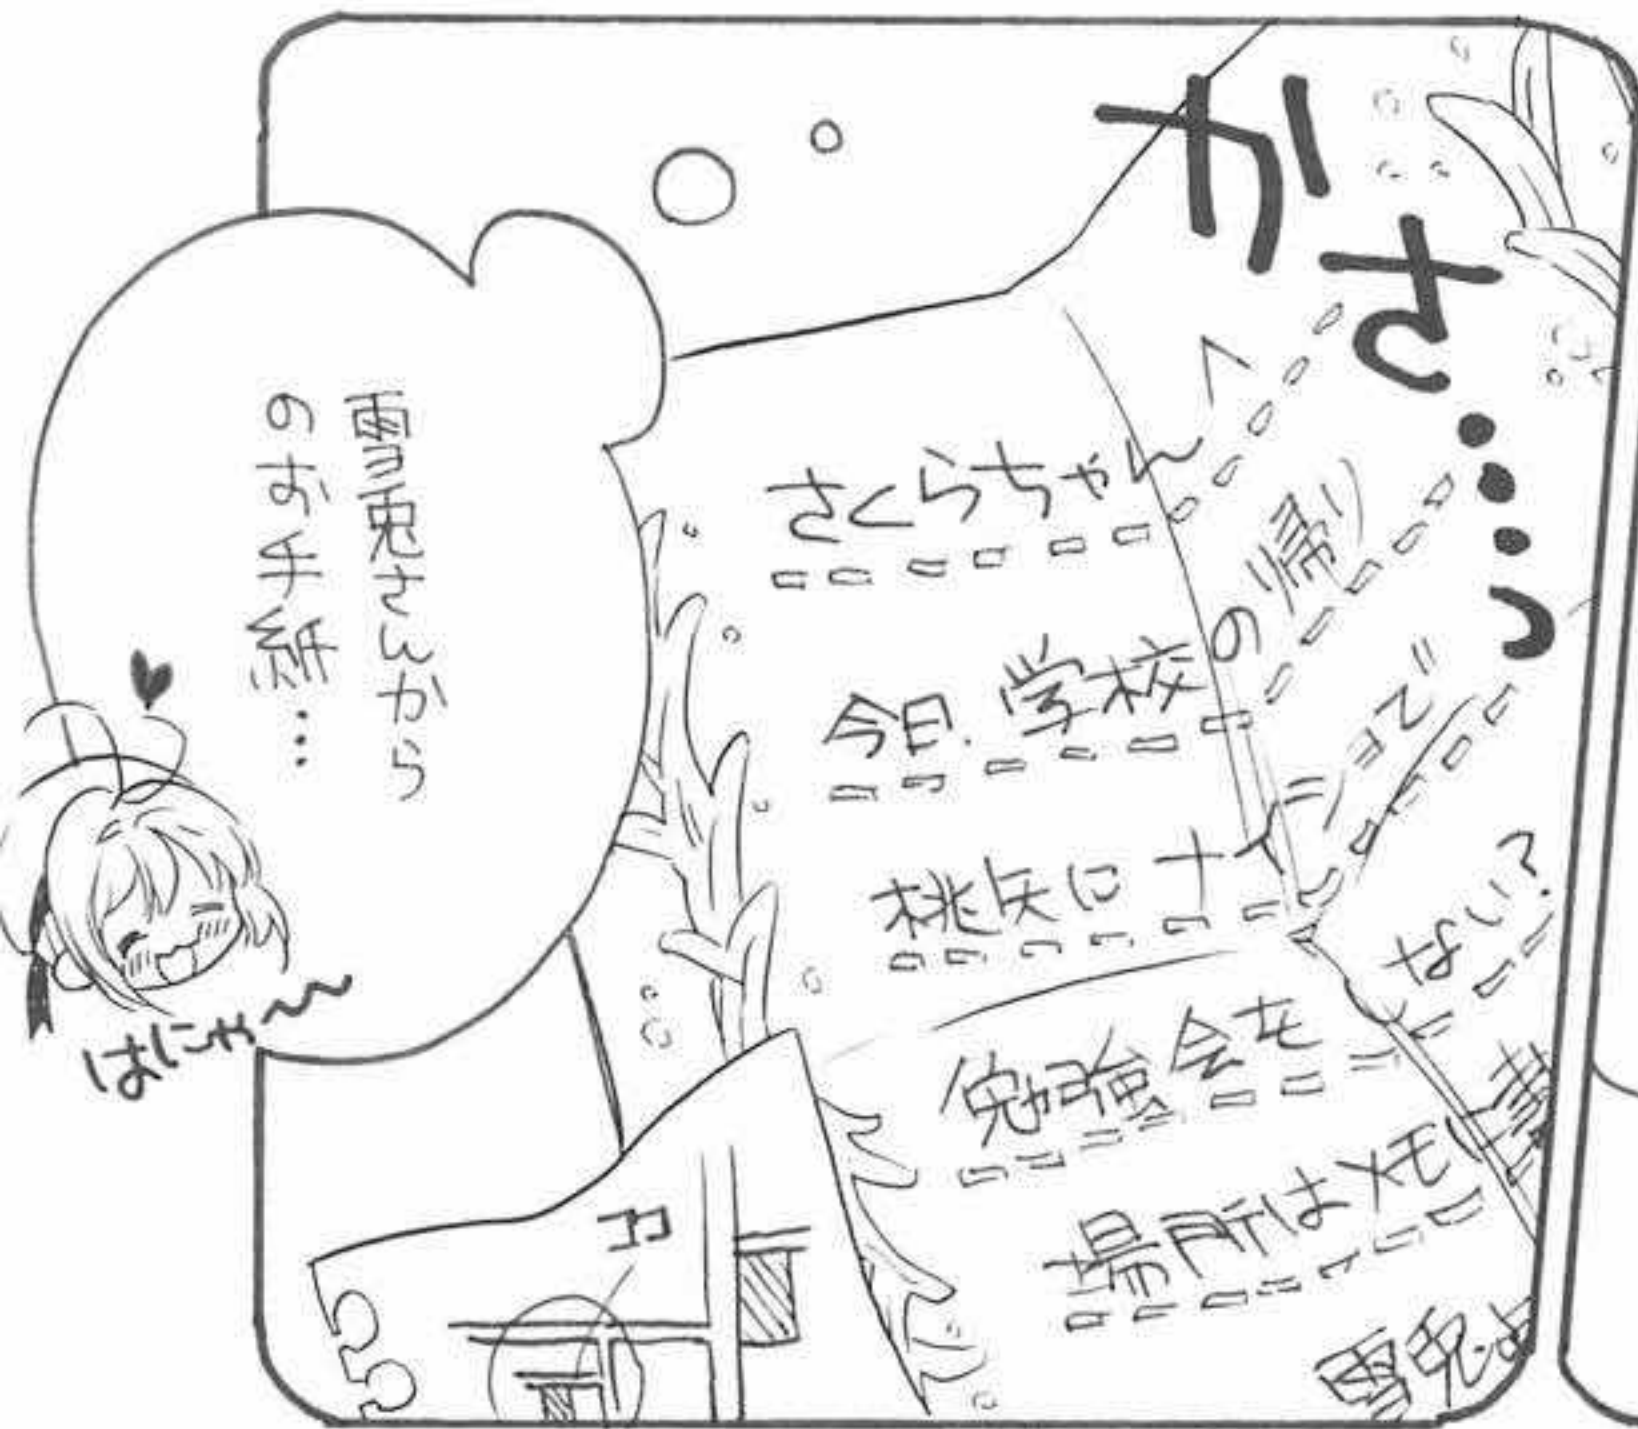 かさ…っ
さくらちゃんへ
今日、学校の帰り
桃矢にナイショで
勉強会を
ない？
場所はメモに書
雪兎よ
雪兎さんから
のお手紙…
はにゃ〜